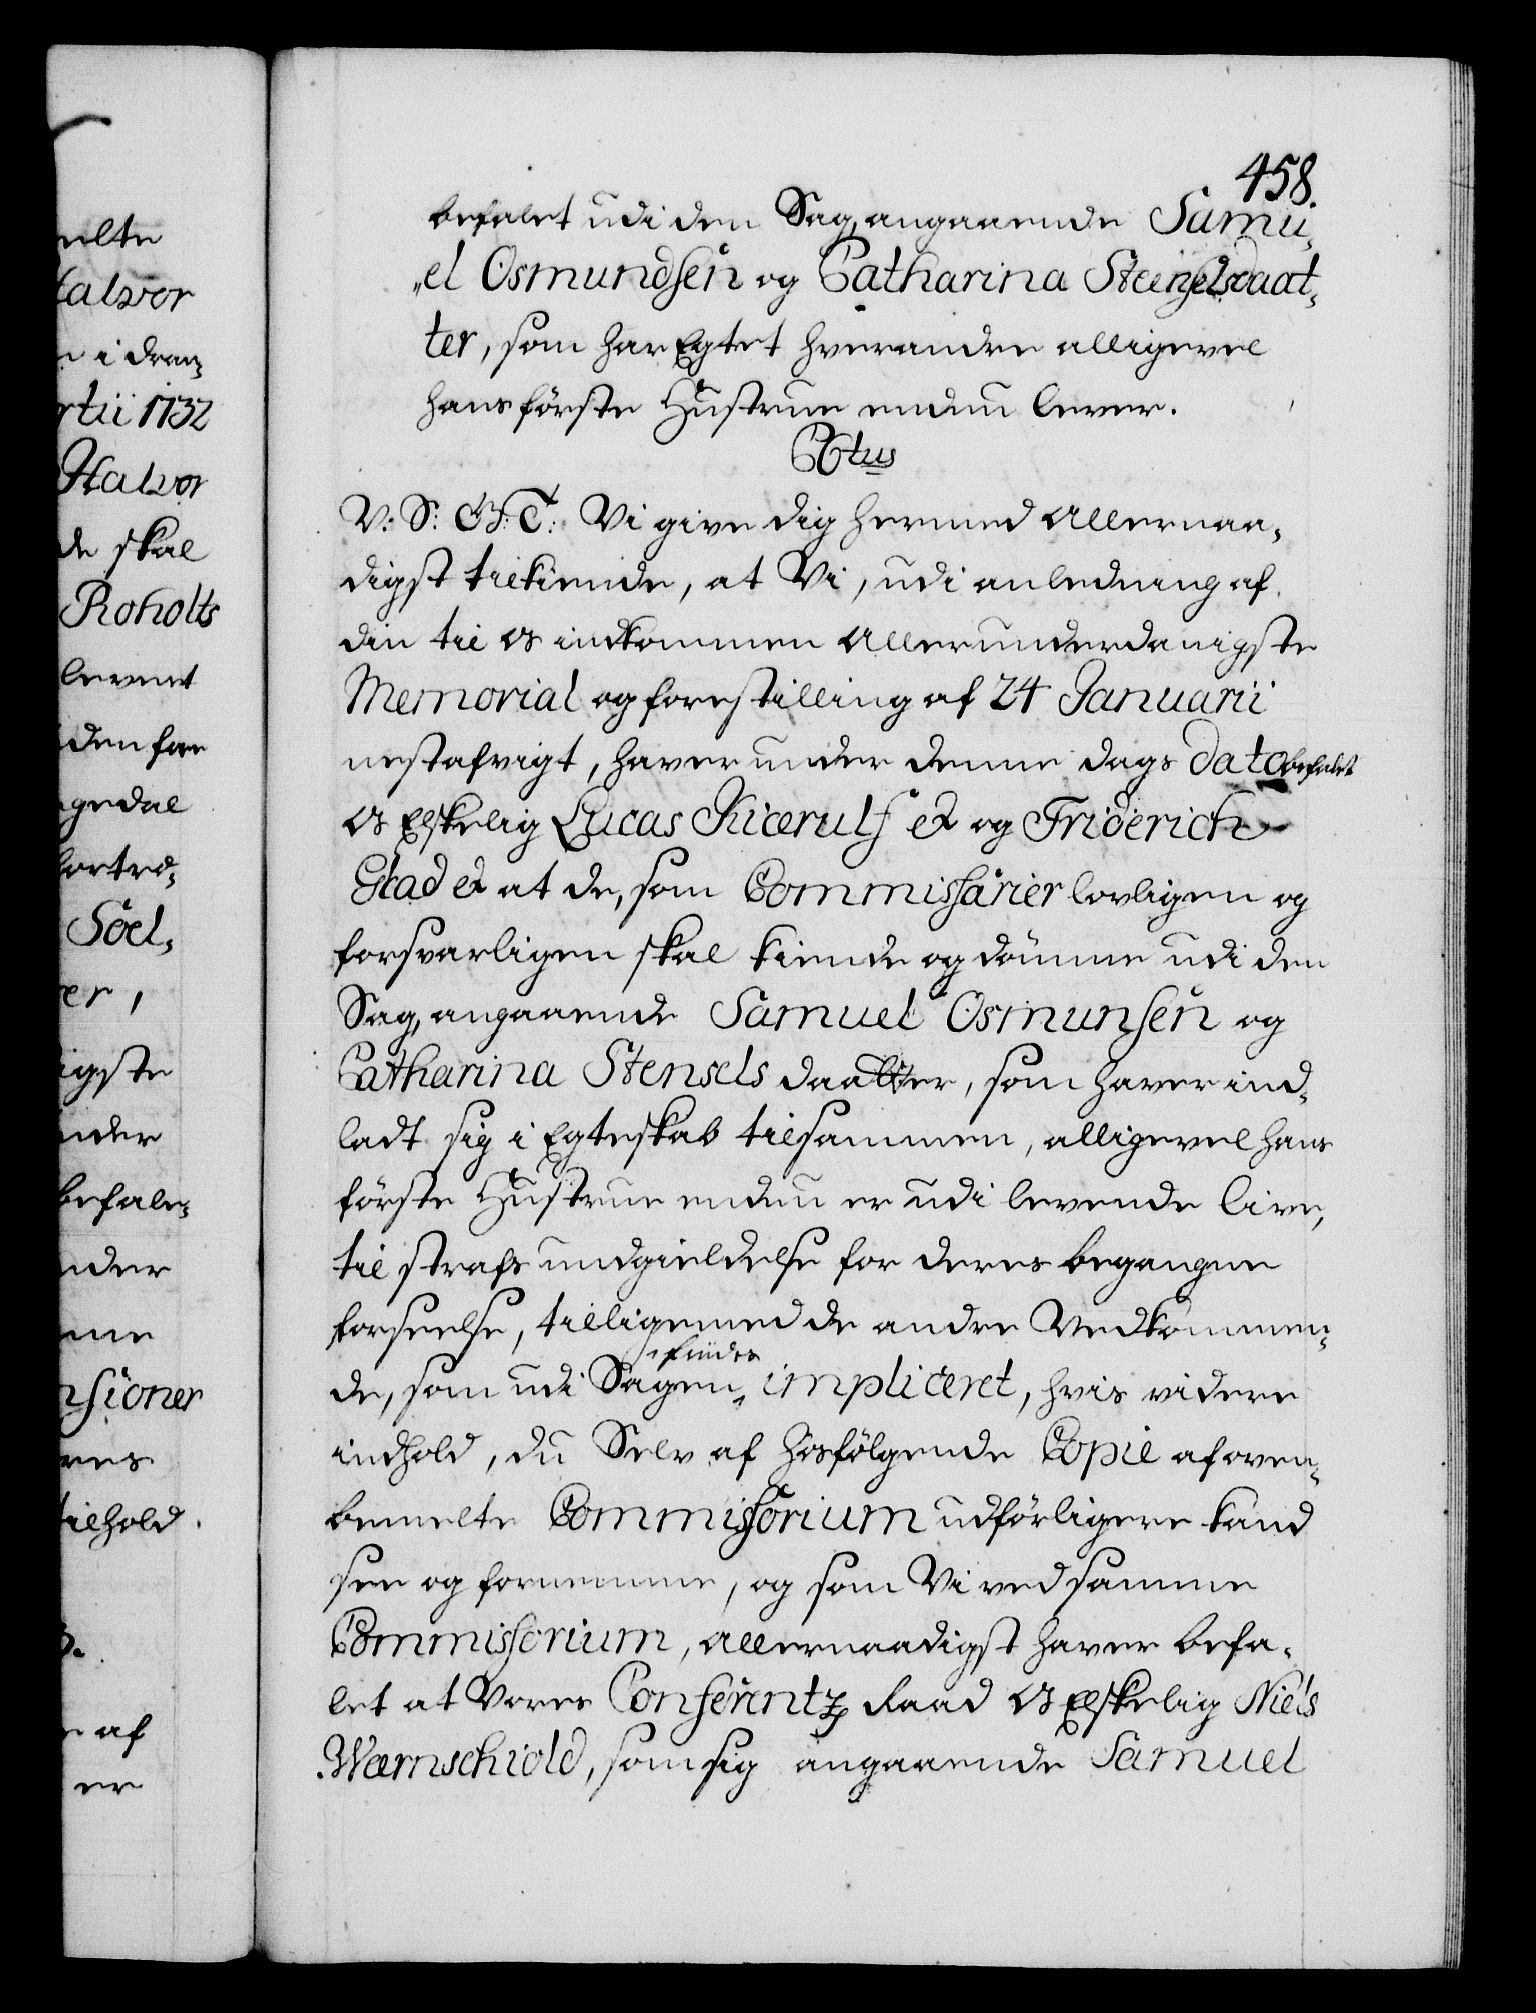 458.
befalet udi den Sag, angaaende Samu-
"el Osmundsen og Catharina Steinselsdaat-
ter, som har Egtet hverandre alligevel
hans förste Hustrue endnu lever.
Ctus
V: S: G: T: Vi give dig hermed Allernaa-
digst tilkiende, at Vi, udi anledning af
din til os indkommen Allerunderdanigste
Memorial og forestilling af 24 Januarii
nestafvigt, haver under denne dags dato befalet
os Elskelig Lucas Kierulf & og Friderich
Glad & at de, som Commissarier lovligen og
forsvarligen skal kiende og dömme udi den
Sag, angaaende Samuel Osmunsen og
Catharina Stensels daatter, som haver ind-
ladt sig i Egteskab tilsammen, alligevel hans
förste Hustrue endnu er udi levende live,
til strafs undgieldelse for deres begangne
forseelse, tilligemed de andre Vedkommen-
findes
de, som udi Sagen, impliceret, hvis videre
indhold, du Selv af hosfölgende Copie af oven-
bemelte Commissorium udförligere kand
see og fornemme, og som Vi ved samme
Commissorium, Allernaadigst haver befa-
let at Vores Conferentz Raad os Elskelig Niels
Wærnschiold, som sig angaaende Samuel
elte
Halvor
e i dran-
rtii 1732
Halvor
de skal
Roholts
levert
den for
gedal
fortrd-
Söel-
er,
igste
nder
befale-
nder
me
nsioner
res
tilhold
e af
er